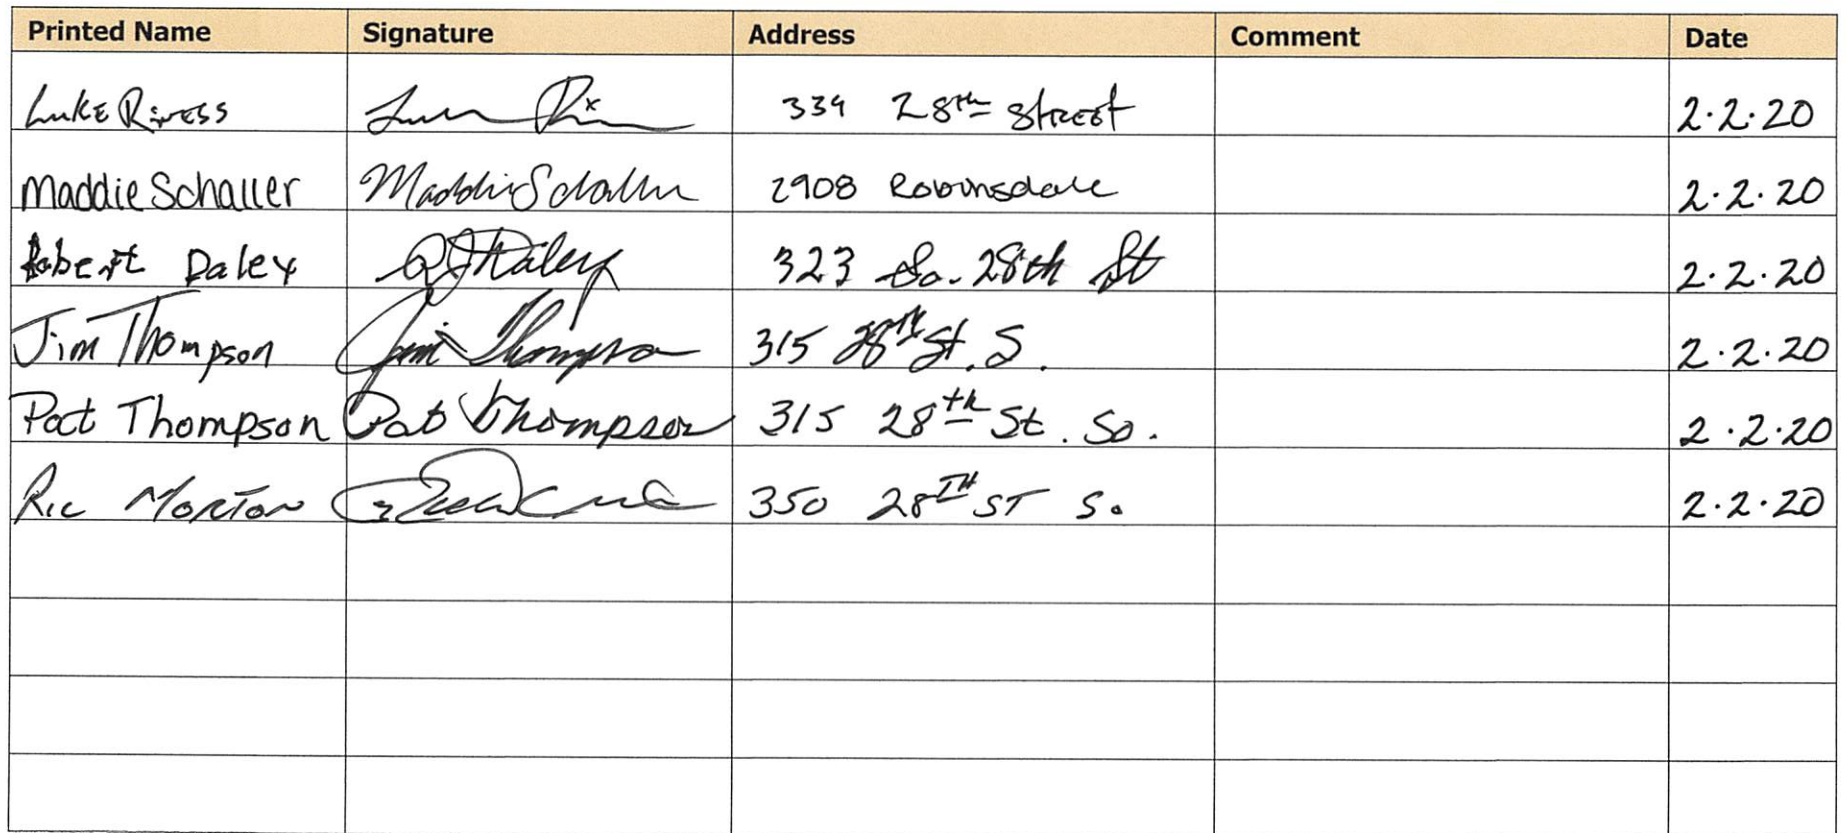 Printed Name Signature Address Comment Date
Luke 28th Street 2.2.20
Maddie Schaller Maddie Schaller 2908 Robinsdale 2.2.20
Robert Daley RJ Daley 323 So. 28th St 2.2.20
Jim Thompson Jim Thompson 315 28th St. S. 2.2.20
Pat Thompson Pat Thompson 315 28th St. So. 2.2.20
Ric Morton 350 28TH ST So. 2.2.20